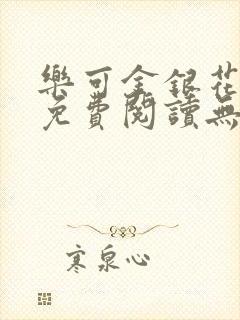 樂可金銀花
免費閱讀無
寒泉心